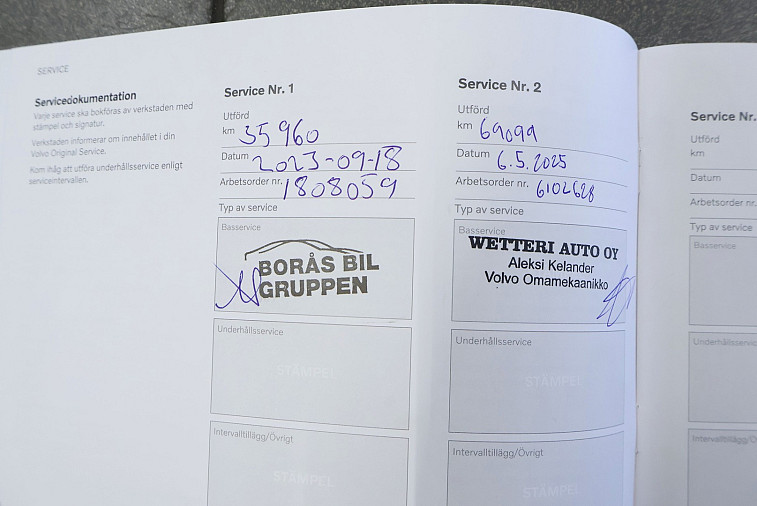 SERVICE
Servicedokumentation
Varje service ska bokföras av verkstaden med
stämpel och signatur.
Verkstaden informerar om innehållet i din
Volvo Original Service.
Kom ihåg att utföra underhållsservice enligt
serviceintervallen.
Service Nr. 1
Utförd
km 35 960
Datum 2023-09-18
Arbetsorder nr. 1808059
Typ av service
Basservice
BORÅS BIL
GRUPPEN
Underhållsservice
STÄMPEL
Intervalltillägg/Övrigt
STÄMPEL
Service Nr. 2
Utförd
km 69099
Datum 6.5.2025
Arbetsorder nr. 6102628
Typ av service
Basservice
WETTERI AUTO OY
Aleksi Kelander
Volvo Omamekaanikko
Underhållsservice
STÄMPEL
Intervalltillägg/Övrigt
STÄMPEL
Service Nr.
Utförd
km
Datum
Arbetsorder nr.
Typ av service
Basservice
Underhållsservice
Intervalltillägg/Ö